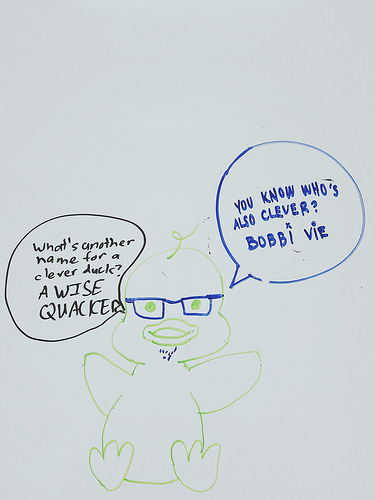 What's another
name for a
clever duck?
A WISE
QUACKER
YOU KNOW WHO'S
ALSO CLEVER?
BOBBI VIE